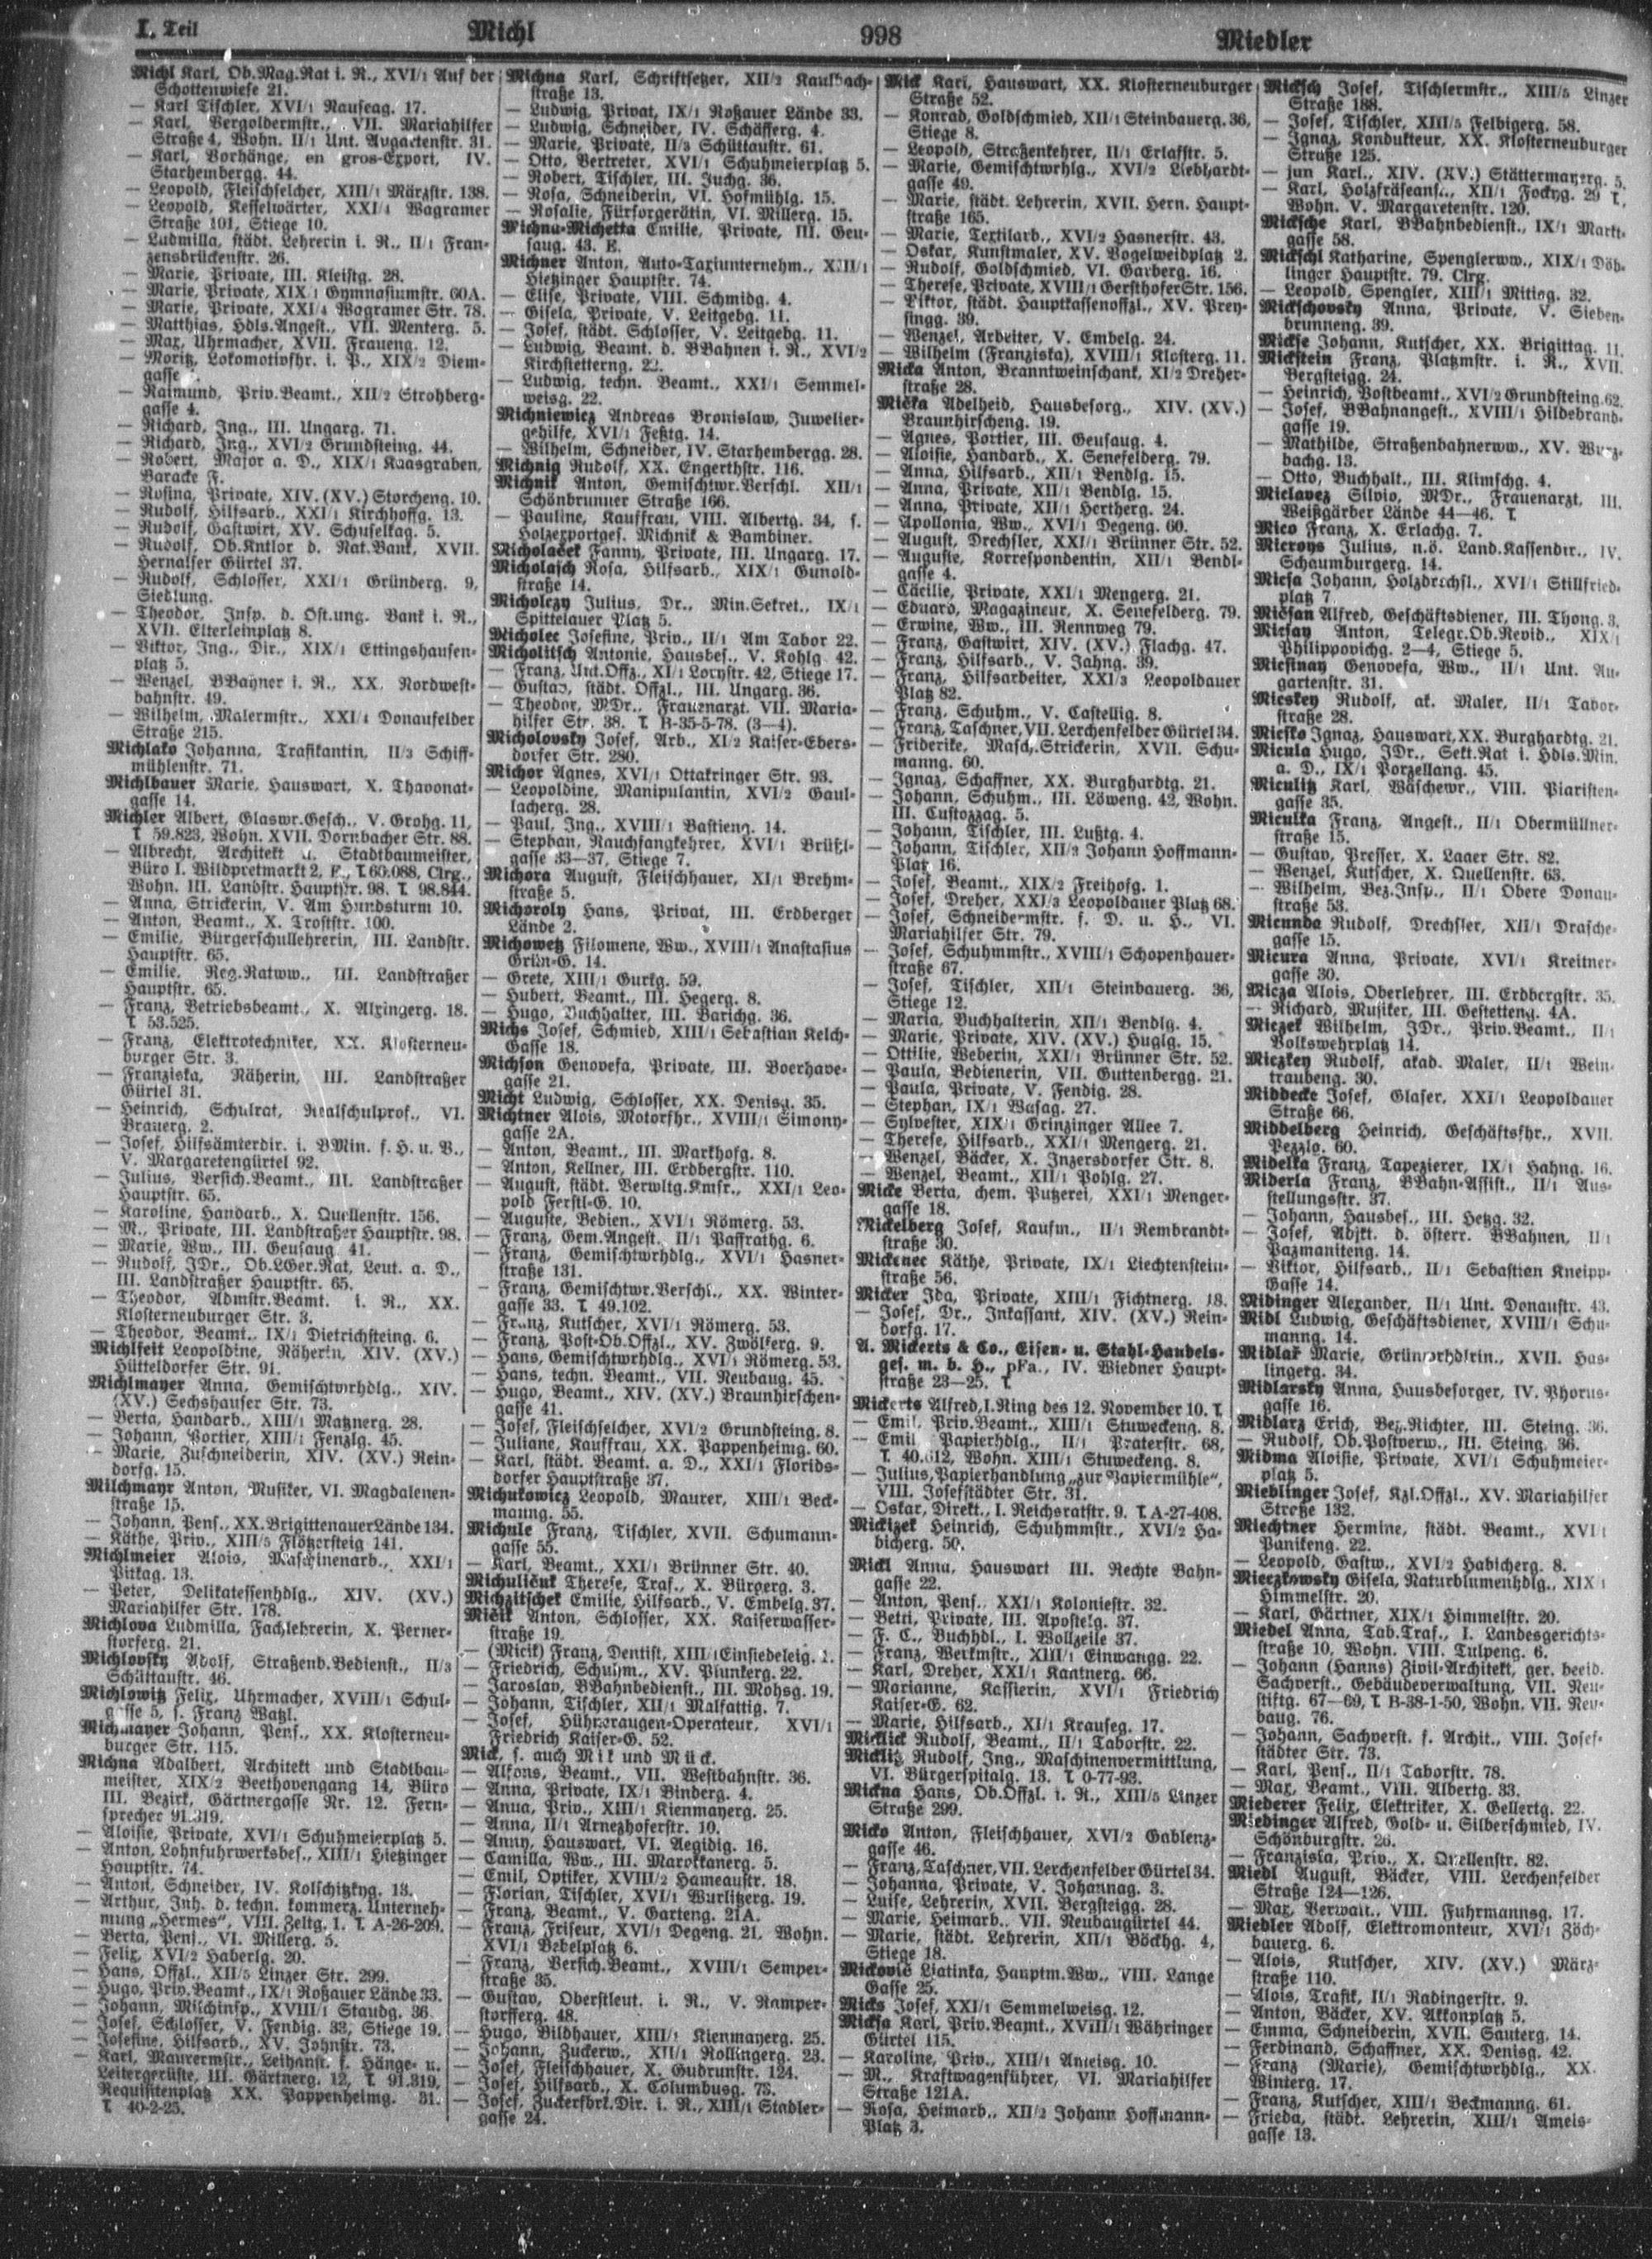 I. Teil Michl 998 Miedler
Michl Karl, Ob.Mag.Rat i. R., XVI/1 Auf der
Schottenwiese 21.
— Karl Tischler, XVI/1 Nauseag. 17.
— Karl, Vergoldermstr., VII. Mariahilfer
Straße 4, Wohn. II/1 Unt. Augartenstr. 31.
— Karl, Vorhänge, en gros-Export, IV.
Starhembergg. 44.
— Leopold, Fleischselcher, XIII/1 Märzstr. 138.
— Leopold, Kesselwärter, XXI/4 Wagramer
Straße 101, Stiege 10.
— Ludmilla, städt. Lehrerin i. R., II/1 Fran-
zensbrückenstr. 26.
— Marie, Private, III. Kleistg. 28.
— Marie, Private, XIX/1 Gymnasiumstr. 60A.
— Marie, Private, XXI/4 Wagramer Str. 78.
— Matthias, Hdls.Angest., VII. Menterg. 5.
— Max, Uhrmacher, XVII. Fraueng. 12.
— Moritz, Lokomotivfhr. i. P., XIX/2 Diem-
gasse
— Raimund, Priv.Beamt., XII/2 Strohberg-
gasse 4.
— Richard, Ing., III. Ungarg. 71.
— Richard, Ing., XVI/2 Grundsteing. 44.
— Robert, Major a. D., XIX/1 Kaasgraben,
Baracke F.
— Rosina, Private, XIV. (XV.) Storcheng. 10.
— Rudolf, Hilfsarb., XXI/1 Kirchhoffg. 13.
— Rudolf, Gastwirt, XV. Schuselkag. 5.
— Rudolf, Ob.Kntlor d. Nat.Bank, XVII.
Hernalser Gürtel 37.
— Rudolf, Schlosser, XXI/1 Gründerg. 9,
Siedlung.
— Theodor, Insp. d. Öst.ung. Bank i. R.,
XVII. Elterleinplatz 8.
— Viktor, Ing., Dir., XIX/1 Ettingshausen-
platz 5.
— Wenzel, BBahner i. R., XX. Nordwest-
bahnstr. 49.
— Wilhelm, Malermstr., XXI/1 Donaufelder
Straße 215.
Michlako Johanna, Trafikantin, II/3 Schiff-
mühlenstr. 71.
Michlbauer Marie, Hauswart, X. Thavonat-
gasse 14.
Michler Albert, Glaswr.Gesch., V. Grohg. 11,
T. 59.823, Wohn. XVII. Dornbacher Str. 88.
— Albrecht, Architekt u. Stadtbaumeister,
Büro I. Wildpretmarkt 2, T. 60.088, Clrg.,
Wohn. III. Landstr. Hauptstr. 98. T. 98.844.
— Anna, Strickerin, V. Am Hundsturm 10.
— Anton, Beamt., X. Troststr. 100.
— Emilie, Bürgerschullehrerin, III. Landstr.
Hauptstr. 65.
— Emilie, Reg.Ratww., III. Landstraßer
Hauptstr. 65.
— Franz, Betriebsbeamt., X. Alxingerg. 18.
T. 53.525.
— Franz, Elektrotechniker, XX. Klosterneu-
burger Str. 3.
— Franziska, Näherin, III. Landstraßer
Gürtel 31.
— Heinrich, Schulrat, Realschulprof., VI.
Brauerg. 2.
— Josef, Hilfsämterdir. i. BMin. f. H. u. V.,
V. Margaretengürtel 92.
— Julius, Versich.Beamt., III. Landstraßer
Hauptstr. 65.
— Karoline, Handarb., X. Quellenstr. 156.
— M., Private, III. Landstraßer Hauptstr. 98.
— Marie, Ww., III. Geusaug. 41.
— Rudolf, JDr., Ob.LGer.Rat, Leut. a. D.,
III. Landstraßer Hauptstr. 65.
— Theodor, Admstr.Beamt. i. R., XX.
Klosterneuburger Str. 3.
— Theodor, Beamt., IX/1 Dietrichsteing. 6.
Michlfeit Leopoldine, Näherin, XIV. (XV.)
Hütteldorfer Str. 91.
Michlmayer Anna, Gemischtwrhdlg., XIV.
(XV.) Sechshauser Str. 73.
— Berta, Handarb., XIII/1 Matznerg. 28.
— Johann, Portier, XIII/1 Fenzlg. 45.
— Marie, Zuschneiderin, XIV. (XV.) Rein-
dorfg. 15.
Milchmayr Anton, Musiker, VI. Magdalenen-
straße 15.
— Johann, Pens., XX. Brigittenauer Lände 134.
— Käthe, Priv., XIII/5 Flötzersteig 141.
Michlmeier Alois, Maschinenarb., XXI/1
Pitkag. 13.
— Peter, Delikatessenhdlg., XIV. (XV.)
Mariahilfer Str. 178.
Michlova Ludmilla, Fachlehrerin, X. Perner-
storferg. 21.
Michlovsky Adolf, Straßenb.Bedienst., II/3
Schüttaustr. 46.
Michlowitz Felix, Uhrmacher, XVIII/1 Schul-
gasse 5, s. Franz Watzl.
Michmayer Johann, Pens., XX. Klosterneu-
burger Str. 115.
Michna Adalbert, Architekt und Stadtbau-
meister, XIX/2 Beethovengang 14, Büro
III. Bezirk, Gärtnergasse Nr. 12. Fern-
sprecher 91.319.
— Aloisie, Private, XVI/1 Schuhmeierplatz 5.
— Anton, Lohnfuhrwerksbes., XIII/1 Hietzinger
Hauptstr. 74.
— Anton, Schneider, IV. Kolschitzkyg. 13.
— Arthur, Inh. d. techn. kommerz. Unterneh-
mung „Hermes“, VIII. Zeltg. 1. T. A-26-209.
— Berta, Pens., VI. Millerg. 5.
— Felix, XVI/2 Haberlg. 20.
— Hans, Offzl., XII/5 Linzer Str. 299.
— Hugo, Priv.Beamt., IX/1 Roßauer Lände 33.
— Johann, Milchinsp., XVIII/1 Staudg. 36.
— Josef, Schlosser, V. Fendig. 33, Stiege 19.
— Josefine, Hilfsarb., XV. Johnstr. 73.
— Karl, Maurermstr., Leihanst. f. Hänge- u.
Leitergerüste, III. Gärtnerg. 12, T. 91.319,
Requisitenplatz XX. Pappenheimg. 31.
T. 40-2-25.
Michna Karl, Schriftsetzer, XII/2 Kaulbach-
straße 13.
— Ludwig, Privat, IX/1 Roßauer Lände 33.
— Ludwig, Schneider, IV. Schäfferg. 4.
— Marie, Private, II/3 Schüttaustr. 61.
— Otto, Vertreter, XVI/1 Schuhmeierplatz 5.
— Robert, Tischler, III. Juchg. 36.
— Rosa, Schneiderin, VI. Hofmühlg. 15.
— Rosalie, Fürsorgerätin, VI. Millerg. 15.
Michna-Michetta Emilie, Private, III. Geu-
saug. 43. E.
Michner Anton, Auto-Taxiunternehm., XIII/1
Hietzinger Hauptstr. 74.
— Elise, Private, VIII. Schmidg. 4.
— Gisela, Private, V. Leitgebg. 11.
— Josef, städt. Schlosser, V. Leitgebg. 11.
— Ludwig, Beamt. d. BBahnen i. R., XVI/2
Kirchstetterng.
— Ludwig, techn. Beamt., XXI/1 Semmel-
weisg. 22.
Michniewicz Andreas Bronislaw, Juwelier-
gehilfe, XVI/1 Feßtg. 14.
— Wilhelm, Schneider, IV. Starhembergg. 28.
Michnig Rudolf, XX. Engerthstr. 116.
Michnik Anton, Gemischtwr.Verschl. XII/1
Schönbrunner Straße 166.
— Pauline, Kauffrau, VIII. Albertg. 34, s.
Holzexportges. Michnik & Bambiner.
Micholaček Fanny, Private, III. Ungarg. 17.
Micholasch Rosa, Hilfsarb., XIX/1 Gunold-
straße 14.
Micholczy Julius, Dr., Min.Sekret., IX/1
Spittelauer Platz 5.
Micholec Josefine, Priv., II/1 Am Tabor 22.
Micholitsch Antonie, Hausbes., V. Kohlg. 42.
— Franz, Unt.Offz., XI/1 Lorystr. 42, Stiege 17.
— Gustav, städt. Offzl., III. Ungarg. 36.
— Theodor, MDr., Frauenarzt. VII. Maria-
hilfer Str. 38. T. B-35-5-78. (3—4).
Micholovsky Josef, Arb., XI/2 Kaiser-Ebers-
dorfer Str. 280.
Michor Agnes, XVI/1 Ottakringer Str. 93.
— Leopoldine, Manipulantin, XVI/2 Gaul-
lacherg. 28.
— Paul, Ing., XVIII/1 Bastieng. 14.
— Stephan, Rauchfangkehrer, XVI/1 Brüßl-
gasse 33—37, Stiege 7.
Michora August, Fleischhauer, XI/1 Brehm-
straße 5.
Michoroly Hans, Privat, III. Erdberger
Lände 2.
Michowetz Filomene, Ww., XVIII/1 Anastasius
Grün-G. 14.
— Grete, XIII/1 Gurkg. 59.
— Hubert, Beamt., III. Hegerg. 8.
— Hugo, Buchhalter, III. Barichg. 36.
Michs Josef, Schmied, XIII/1 Sebastian Kelch-
Gasse 18.
Michson Genovefa, Private, III. Boerhave-
gasse 21.
Micht Ludwig, Schlosser, XX. Denisg. 35.
Michtner Alois, Motorfhr., XVIII/1 Simony-
gasse 2A.
— Anton, Beamt., III. Markhofg. 8.
— Anton, Kellner, III. Erdbergstr. 110.
— August, städt. Verwltg.Kmsr., XXI/1 Leo-
pold Ferstl-G. 10.
— Auguste, Bedien., XVI/1 Römerg. 53.
— Franz, Gem.Angest. II/1 Paffrathg. 6.
— Franz, Gemischtwrhdlg., XVI/1 Hasner-
straße 131.
— Franz, Gemischtwr.Verschl., XX. Winter-
gasse 33. T. 49.102.
— Franz, Kutscher, XVI/1 Römerg. 53.
— Franz, Post-Ob.Offzl., XV. Zwölferg. 9.
— Hans, Gemischtwrhdlg., XVI/1 Römerg. 53.
— Hans, techn. Beamt., VII. Neubaug. 45.
— Hugo, Beamt., XIV. (XV.) Braunhirschen-
gasse 41.
— Josef, Fleischselcher, XVI/2 Grundsteing. 8.
— Juliane, Kauffrau, XX. Pappenheimg. 60.
— Karl, städt. Beamt. a. D., XXI/1 Florids-
dorfer Hauptstraße 37.
Michukowicz Leopold, Maurer, XIII/1 Beck-
manng. 55.
Michule Franz, Tischler, XVII. Schumann-
gasse 55.
— Karl, Beamt., XXI/1 Brünner Str. 40.
Michuličuk Therese, Traf., X. Bürgerg. 3.
Michzitschek Emilie, Hilfsarb., V. Embelg. 37.
Mičik Anton, Schlosser, XX. Kaiserwasser-
straße 19.
— (Micik) Franz, Dentist, XIII/1 Einsiedeleig. 1.
— Friedrich, Schuhm., XV. Plunkerg. 22.
— Jaroslav, BBahnbedienst., III. Mohsg. 19.
— Johann, Tischler, XII/1 Malfattig. 7.
— Josef, Hühneraugen-Operateur, XVI/1
Friedrich Kaiser-G. 52.
Mick, s. auch Mik und Mück.
— Alfons, Beamt., VII. Westbahnstr. 36.
— Anna, Private, IX/1 Binderg. 4.
— Anna, Priv., XIII/1 Kienmayerg. 25.
— Anna, II/1 Arnezhoferstr. 10.
— Anny, Hauswart, VI. Aegidig. 16.
— Camilla, Ww., III. Marokkanerg. 5.
— Emil, Optiker, XVIII/2 Hameaustr. 18.
— Florian, Tischler, XVI/1 Wurlitzerg. 19.
— Franz, Beamt., V. Garteng. 21A.
— Franz, Friseur, XVI/1 Degeng. 21, Wohn.
XVI/1 Bebelplatz 6.
— Franz, Versich.Beamt., XVIII/1 Semper-
straße 35.
— Gustav, Oberstleut. i. R., V. Ramper-
storfferg. 48.
— Hugo, Bildhauer, XIII/1 Kienmayerg. 25.
— Johann, Zuckerw., XII/1 Rollingerg. 23.
— Josef, Fleischhauer, X. Gudrunstr. 124.
— Josef, Hilfsarb., X. Columbusg. 73.
— Josef, Zuckerfbrk.Dir. i. R., XIII/1 Stadler-
gasse 24.
Mick Karl, Hauswart, XX. Klosterneuburger
Straße 52.
— Konrad, Goldschmied, XII/1 Steinbauerg. 36,
Stiege 8.
— Leopold, Straßenkehrer, II/1 Erlafstr. 5.
— Marie, Gemischtwrhlg., XVI/2 Liebhardt-
gasse 49.
— Marie, städt. Lehrerin, XVII. Hern. Haupt-
straße 165.
— Marie, Textilarb., XVI/2 Hasnerstr. 43.
— Oskar, Kunstmaler, XV. Vogelweidplatz 2.
— Rudolf, Goldschmied, VI. Garberg. 16.
— Therese, Private, XVIII/1 Gersthofer Str. 156.
— Viktor, städt. Hauptkassenoffzl., XV. Prey-
singg. 39.
— Wenzel, Arbeiter, V. Embelg. 24.
— Wilhelm (Franziska), XVIII/1 Klosterg. 11.
Micka Anton, Branntweinschank, XI/2 Dreher-
straße 28.
Mička Adelheid, Hausbesorg., XIV. (XV.)
Braunhirscheng. 19.
— Agnes, Portier, III. Geusaug. 4.
— Aloisie, Handarb., X. Senefelderg. 79.
— Anna, Hilfsarb., XII/1 Bendlg. 15.
— Anna, Private, XII/1 Bendlg. 15.
— Anna, Private, XII/1 Hertherg. 24.
— Apollonia, Ww., XVI/1 Degeng. 60.
— August, Drechsler, XXI/1 Brünner Str. 52.
— Auguste, Korrespondentin, XII/1 Bendl-
gasse 4.
— Cäcilie, Private, XXI/1 Mengerg. 21.
— Eduard, Magazineur, X. Senefelderg. 79.
— Erwine, Ww., III. Rennweg 79.
— Franz, Gastwirt, XIV. (XV.) Flachg. 47.
— Franz, Hilfsarb., V. Jahng. 39.
— Franz, Hilfsarbeiter, XXI/3 Leopoldauer
Platz 82.
— Franz, Schuhm., V. Castellig. 8.
— Franz, Taschner, VII. Lerchenfelder Gürtel 34.
— Friderike, Masch.Strickerin, XVII. Schu-
manng. 60.
— Ignaz, Schaffner, XX. Burghardtg. 21.
— Johann, Schuhm., III. Löweng. 42, Wohn.
III. Custozzag. 5.
— Johann, Tischler, III. Lußtg. 4.
— Johann, Tischler, XII/3 Johann Hoffmann-
Platz 16.
— Josef, Beamt., XIX/2 Freihofg. 1.
— Josef, Dreher, XXI/3 Leopoldauer Platz 68.
— Josef, Schneidermstr. f. D. u. H., VI.
Mariahilfer Str. 79.
— Josef, Schuhmmstr., XVIII/1 Schopenhauer-
straße 67.
— Josef, Tischler, XII/1 Steinbauerg. 36,
Stiege 12.
— Maria, Buchhalterin, XII/1 Bendlg. 4.
— Marie, Private, XIV. (XV.) Huglg. 15.
— Ottilie, Weberin, XXI/1 Brünner Str. 52.
— Paula, Bedienerin, VII. Guttenbergg. 21.
— Paula, Private, V. Fendig. 28.
— Stephan, IX/1 Wasag. 27.
— Sylvester, XIX/1 Grinzinger Allee 7.
— Therese, Hilfsarb., XXI/1 Mengerg. 21.
— Wenzel, Bäcker, X. Inzersdorfer Str. 8.
— Wenzel, Beamt., XII/1 Pohlg. 27.
Micke Berta, chem. Putzerei, XXI/1 Menger-
gasse 18.
Mickelberg Josef, Kaufm., II/1 Rembrandt-
straße 30.
Mickenec Käthe, Private, IX/1 Liechtenstein-
straße 56.
Micker Ida, Private, XIII/1 Fichtnerg. 18.
— Josef, Dr., Inkassant, XIV. (XV.) Rein-
dorfg. 17.
A. Mickerts & Co., Eisen- u. Stahl-Handels-
ges. m. b. H., pFa., IV. Wiedner Haupt-
straße 23—25. T.
Mickerts Alfred, I. Ring des 12. November 10. T.
— Emil, Priv.Beamt., XIII/1 Stuweckeng. 8.
— Emil, Papierhdlg., II/1 Praterstr. 68,
T. 40.612, Wohn. XIII/1 Stuweckeng. 8.
— Julius, Papierhandlung „zur Papiermühle“,
VIII. Josefstädter Str. 31.
— Oskar, Direkt., I. Reichsratstr. 9. T. A-27-408.
Mickizek Heinrich, Schuhmmstr., XVI/2 Ha-
bicherg. 50.
Mickl Anna, Hauswart III. Rechte Bahn-
gasse 22.
— Anton, Pens., XXI/1 Koloniestr. 32.
— Betti, Private, III. Apostelg. 37.
— F. C., Buchhdl., I. Wollzeile 37.
— Franz, Werkmstr., XIII/1 Einwangg. 22.
— Karl, Dreher, XXI/1 Kantnerg. 66.
— Marianne, Kassierin, XVI/1 Friedrich
Kaiser-G. 62.
— Marie, Hilfsarb., XI/1 Krauseg. 17.
Micklick Rudolf, Beamt., II/1 Taborstr. 22.
Micklitz Rudolf, Ing., Maschinenvermittlung,
VI. Bürgerspitalg. 13. T. 0-77-93.
Mickna Hans, Ob.Offzl. i. R., XIII/5 Linzer
Straße 299.
Micko Anton, Fleischhauer, XVI/2 Gablenz-
gasse 46.
— Franz, Taschner, VII. Lerchenfelder Gürtel 34.
— Johanna, Private, V. Johannag. 3.
— Luise, Lehrerin, XVII. Bergsteigg. 28.
— Marie, Heimarb., VII. Neubaugürtel 44.
— Marie, städt. Lehrerin, XII/1 Böckhg. 4,
Stiege 18.
Micković Zlatinka, Hauptm.Ww., VIII. Lange
Gasse 25.
Micks Josef, XXI/1 Semmelweisg. 12.
Micksa Karl, Priv.Beamt., XVIII/1 Währinger
Gürtel 115.
— Karoline, Priv., XIII/1 Ameisg. 10.
— M., Kraftwagenführer, VI. Mariahilfer
Straße 121A.
— Rosa, Heimarb., XII/2 Johann Hoffmann-
Platz 3.
Micksch Josef, Tischlermstr., XIII/5 Linzer
Straße 188.
— Josef, Tischler, XIII/5 Felbigerg. 58.
— Ignaz, Kondukteur, XX. Klosterneuburger
Straße 125.
— jun Karl., XIV. (XV.) Stättermayerg. 5.
— Karl, Holzfräseanst., XII/1 Fockyg. 29 T.,
Wohn. V. Margaretenstr. 120.
Micksche Karl, BBahnbedienst., IX/1 Markt-
gasse 58.
Mickschl Katharine, Spenglerww., XIX/1 Döb-
linger Hauptstr. 79. Clrg.
— Leopold, Spengler, XIII/1 Mitisg. 32.
Mickschovsky Anna, Private, V. Sieben-
brunneng. 39.
Mickse Johann, Kutscher, XX. Brigittag. 11.
Mickstein Franz, Platzmstr. i. R., XVII.
Bergsteigg. 24.
— Heinrich, Postbeamt., XVI/2 Grundsteing. 62.
— Josef, BBahnangest., XVIII/1 Hildebrand-
gasse 19.
— Mathilde, Straßenbahnerww., XV. Wurz-
bachg. 13.
— Otto, Buchhalt., III. Klimschg. 4.
Miclavez Silvio, MDr., Frauenarzt, III.
Weißgärber Lände 44—46. T.
Mico Franz, X. Erlachg. 7.
Microys Julius, n.ö. Land.Kassendir., IV.
Schaumburgerg. 14.
Micsa Johann, Holzdrechsl., XVI/1 Stillfried-
platz 7.
Micsan Alfred, Geschäftsdiener, III. Thong. 3.
Micsay Anton, Telegr.Ob.Revid., XIX/1
Philippovichg. 2—4, Stiege 5.
Micsinay Genovefa, Ww., II/1 Unt. Au-
gartenstr. 31.
Micskey Rudolf, ak. Maler, II/1 Tabor-
straße 28.
Micsko Ignaz, Hauswart, XX. Burghardtg. 21.
Micula Hugo, JDr., Sekt.Rat i. Hdls.Min.
a. D., IX/1 Porzellang. 45.
Miculitz Karl, Wäschewr., VIII. Piaristen-
gasse 35.
Miculka Franz, Angest., II/1 Obermüllner-
straße 15.
— Gustav, Presser, X. Laaer Str. 82.
— Wenzel, Kutscher, X. Quellenstr. 63.
— Wilhelm, Bez.Insp., II/1 Obere Donau-
straße 53.
Micunda Rudolf, Drechsler, XII/1 Drasche-
gasse 15.
Micura Anna, Private, XVI/1 Kreitner-
gasse 30.
Micza Alois, Oberlehrer, III. Erdbergstr. 35.
— Richard, Musiker, III. Gestetteng. 4A.
Miczek Wilhelm, JDr., Priv.Beamt., II/1
Volkswehrplatz 14.
Miczkey Rudolf, akad. Maler, II/1 Wein-
traubeng. 30.
Middecke Josef, Glaser, XXI/1 Leopoldauer
Straße 66.
Middelberg Heinrich, Geschäftsfhr., XVII.
Pezzlg. 60.
Midelka Franz, Tapezierer, IX/1 Hahng. 16.
Miderla Franz, BBahn-Assist., II/1 Aus-
stellungsstr. 37.
— Johann, Hausbes., III. Hetzg. 32.
— Josef, Adjkt. d. österr. BBahnen, II/1
Pazmaniteng. 14.
— Viktor, Hilfsarb., II/1 Sebastian Kneipp-
Gasse 14.
Midinger Alexander, II/1 Unt. Donaustr. 43.
Midl Ludwig, Geschäftsdiener, XVIII/1 Schu-
manng. 14.
Midlař Marie, Grünwrhdlrin., XVII. Has-
lingerg. 34.
Midlarsky Anna, Hausbesorger, IV. Phorus-
gasse 16.
Midlarz Erich, Bez.Richter, III. Steing. 36.
— Rudolf, Ob.Postverw., III. Steing. 36.
Midma Aloisie, Private, XVI/1 Schuhmeier-
platz 5.
Mieblinger Josef, Kzl.Offzl., XV. Mariahilfer
Straße 132.
Miechtner Hermine, städt. Beamt., XVI/1
Panikeng. 22.
— Leopold, Gastw., XVI/2 Habicherg. 8.
Mieczkowsky Gisela, Naturblumenhdlg., XIX/1
Himmelstr. 20.
— Karl, Gärtner, XIX/1 Himmelstr. 20.
Miedel Anna, Tab.Traf., I. Landesgerichts-
straße 10, Wohn. VIII. Tulpeng. 6.
— Johann (Hanns) Zivil-Architekt, ger. beeid.
Sachverst., Gebäudeverwaltung, VII. Neu-
stiftg. 67—69, T. B-38-1-50, Wohn. VII. Neu-
baug. 76.
— Johann, Sachverst. f. Archit., VIII. Josef-
städter Str. 73.
— Karl, Pens., II/1 Taborstr. 78.
— Max, Beamt., VIII. Albertg. 33.
Miederer Felix, Elektriker, X. Gellertg. 22.
Miedinger Alfred, Gold- u. Silberschmied, IV.
Schönburgstr. 26.
— Franziska, Priv., X. Quellenstr. 82.
Miedl August, Bäcker, VIII. Lerchenfelder
Straße 124—126.
— Max, Verwalt., VIII. Fuhrmannsg. 17.
Miedler Adolf, Elektromonteur, XVI/1 Zöch-
bauerg. 6.
— Alois, Kutscher, XIV. (XV.) März-
straße 110.
— Alois, Trafik, II/1 Radingerstr. 9.
— Anton, Bäcker, XV. Akkonplatz 5.
— Emma, Schneiderin, XVII. Sauterg. 14.
— Ferdinand, Schaffner, XX. Denisg. 42.
— Franz (Marie), Gemischtwrhdlg., XX.
Winterg. 17.
— Franz, Kutscher, XIII/1 Beckmanng. 61.
— Frieda, städt. Lehrerin, XIII/1 Ameis-
gasse 13.